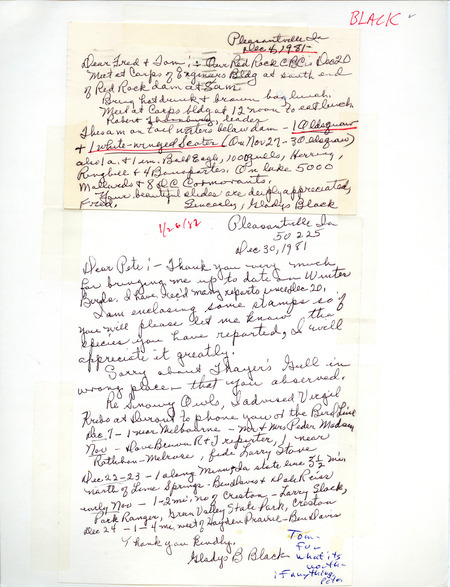 BLACK
Pleasantville Ia
Dec 4, 1981
Dear Fred & Tom; - Our Red Rock CBC is Dec 20
Meet at Corps of Engineers Bldg at south end
of Red Rock dam at 8am
Bring hot drink & brown bag lunch.
Meet at Corps bldg at 12 noon to eat lunch
Robert Thornburg, leader
This am on tail waters below dam - 1 Oldsquaw
+ 1 white-winged Scoter (On Nov 27 - 3 Oldsquaw)
also 1 a. & 1 im. Bald Eagle, 100 gulls, Herring,
Ringbill & 4 Bonapartes. On lake 5000
Mallards & 8 DC Cormorants.
Your beautiful slides are deeply appreciated,
Fred. Sincerely, Gladys Black
1/26/82
Pleasantville Ia
50225
Dec 30, 1981
Dear Pete; - Thank you very much
for bringing me up to date on Winter
Birds. I have rec'd many reports since Dec 20.
I am enclosing some stamps so if
you will please let me know the
species you have reported, I will
appreciate it greatly.
Sorry about Thayer's Gull in
wrong place - that you observed.
Re Snowy Owls, I advised Virgil
at to phone you or the Bird Line
Dec 7 - 1 near Melbourne - Mr & Mrs Peder Madsen
Nov - Dave Brown R & T reporter, 1 near
Rathbun - Melrose, fide Larry Stone
Dec 22-23 - 1 along Minn, Ia state line 3 1/2 mi
north of Lime Springs - Ben Davis & Dale Reiss
early Nov - 1 - 2 mi. no of Creston - Larry Slack,
Park Ranger, Green Valley State Park, Creston
Dec 24 - 1 - 4 mi west of Hayden Prairie - Ben Davis
Thank you kindly,
Gladys B Black
Tom -
For
what its
worth -
if anything
Pete